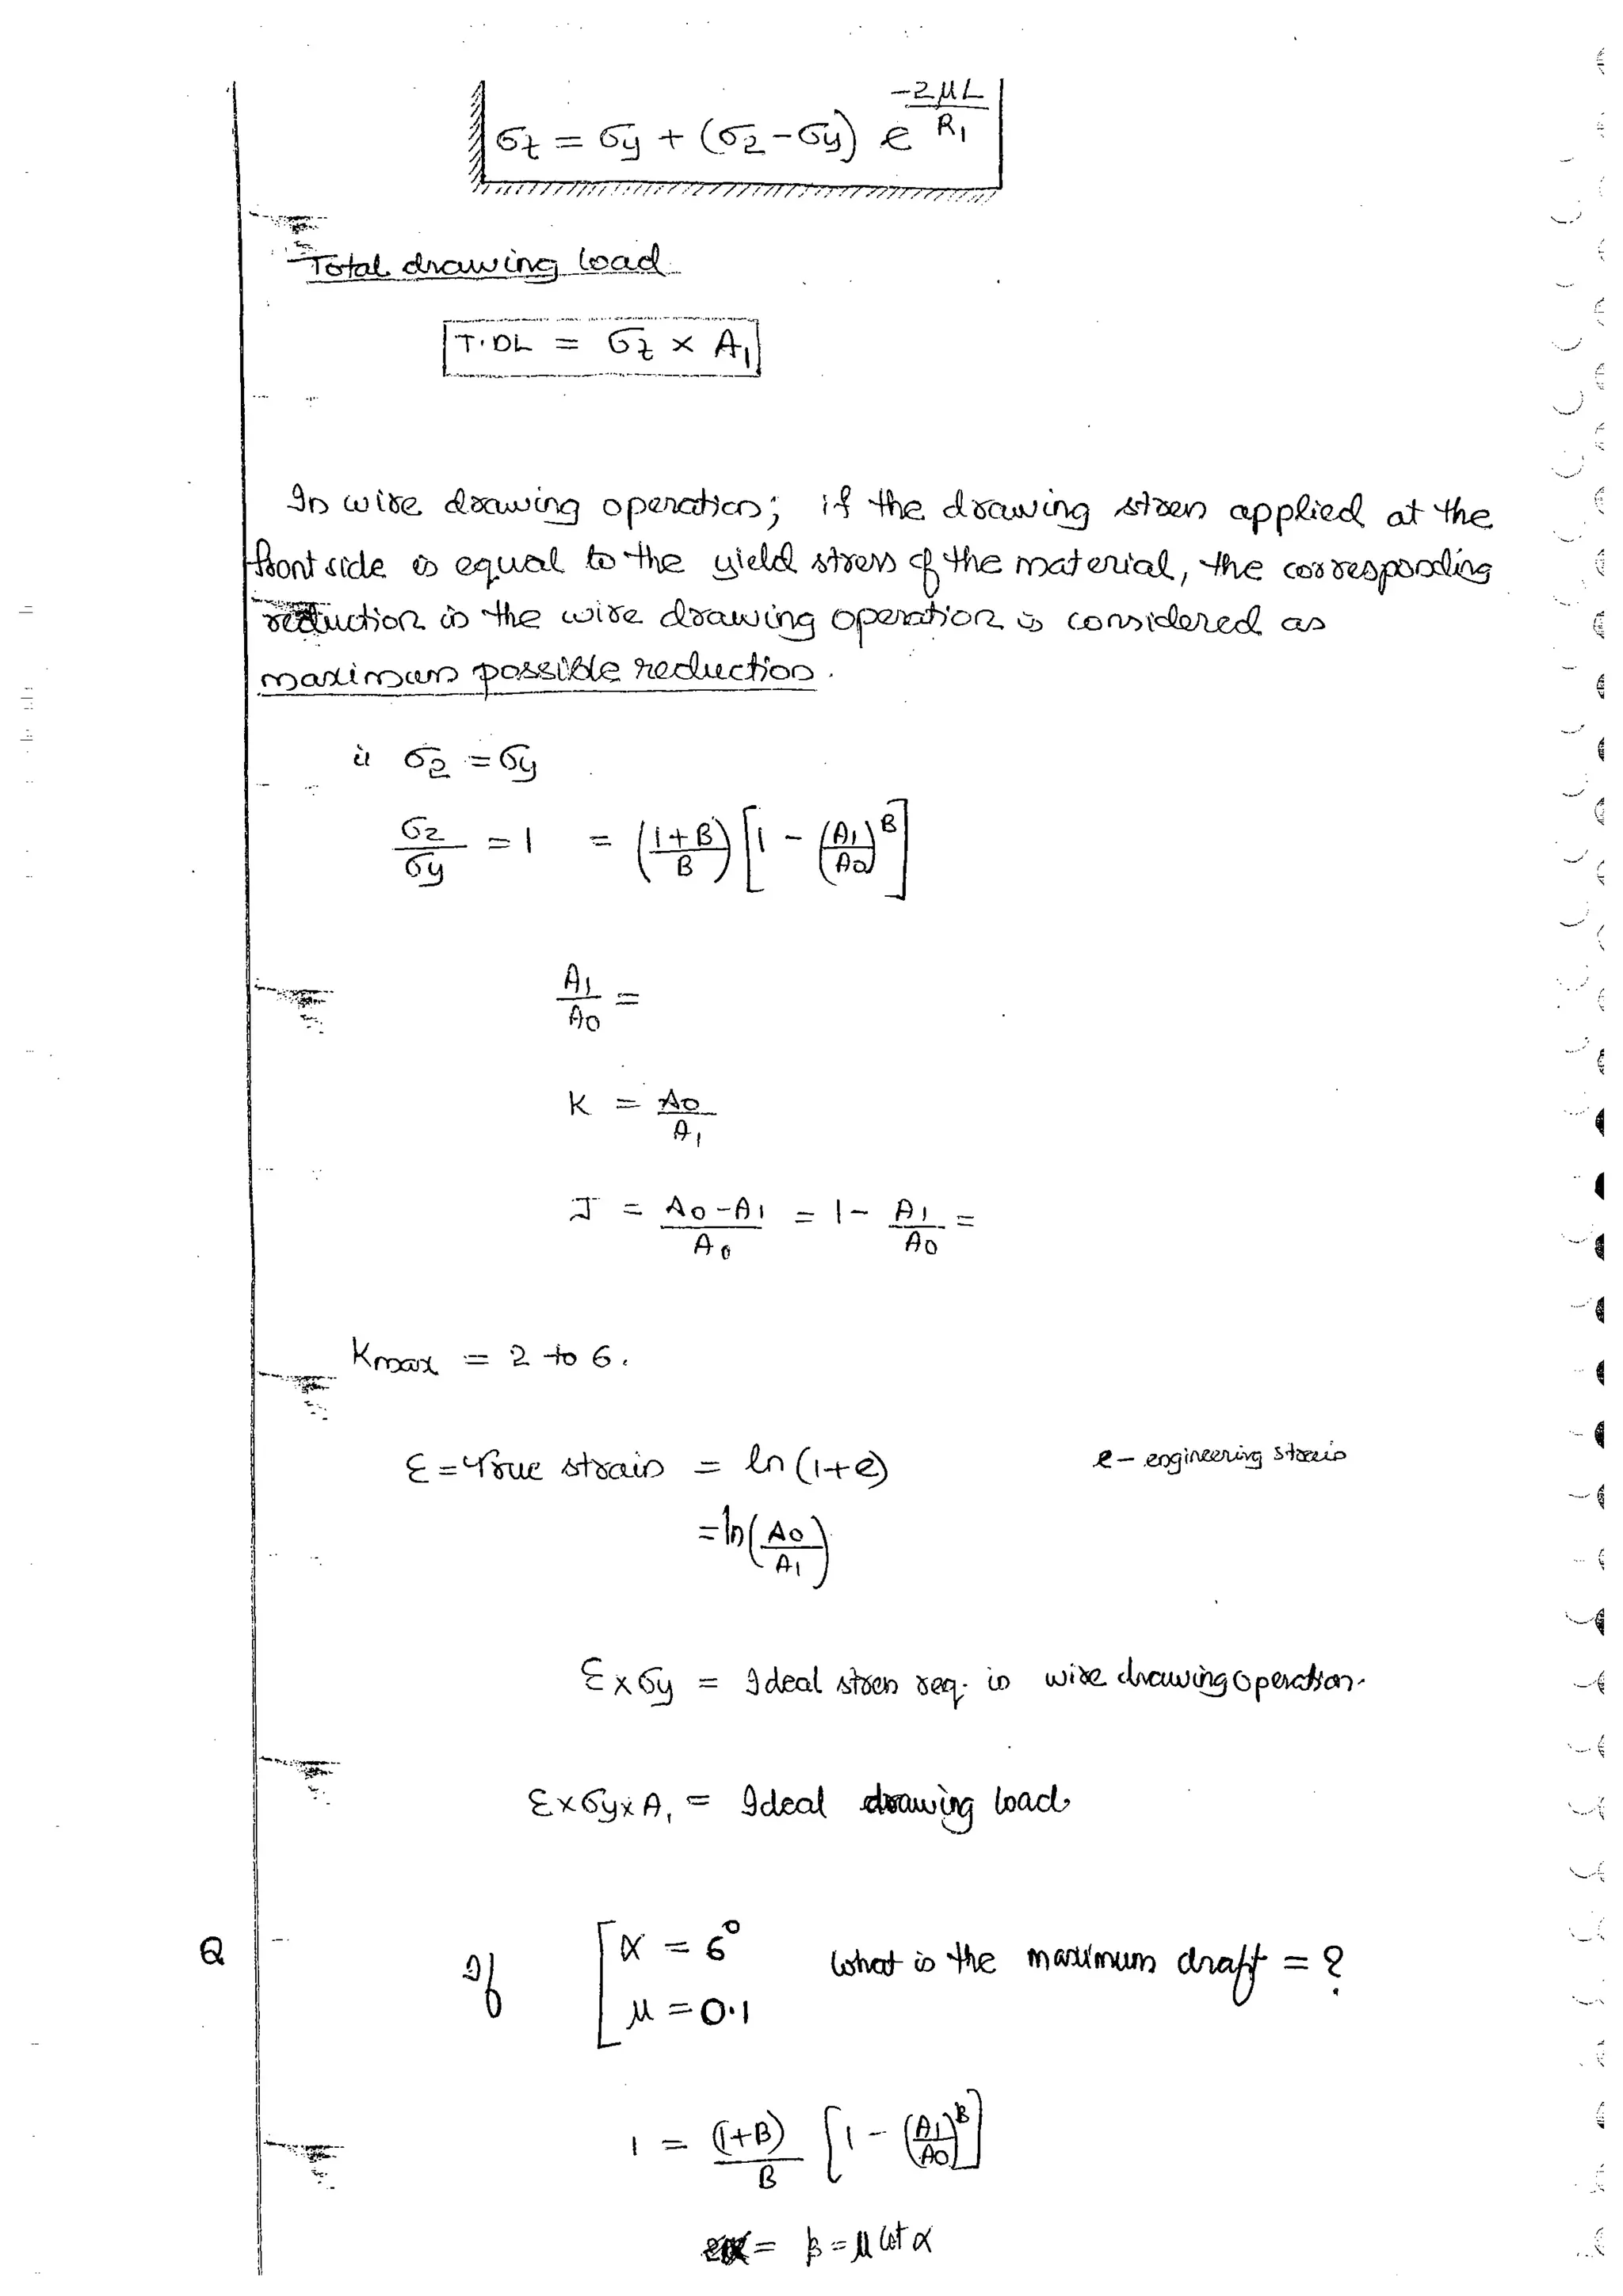 σz = σy + (σ2 - σy) e^(-2μL/R1)
Total drawing load
T.DL = σz × A1
In wire drawing operation; if the drawing stress applied at the
front side is equal to the yield stress of the material, the corresponding
reduction in the wire drawing operation is considered as
maximum possible reduction.
ie σ2 = σy
σ2/σy = 1 = (1+B/B) [1 - (A1/A0)^B]
A1/A0 =
K = A0/A1
J = A0-A1/A0 = 1 - A1/A0 =
Kmax = 2 to 6.
ε = True strain = ln(1+e) e - engineering strain
= ln(A0/A1)
ε × σy = Ideal stress req. in wire drawing operation.
ε × σy × A1 = Ideal drawing load
Q If [α = 6° What is the maximum draft = ?
μ = 0.1
1 = (1+B)/B [1 - (A1/A0)^B]
= β = μ cot α